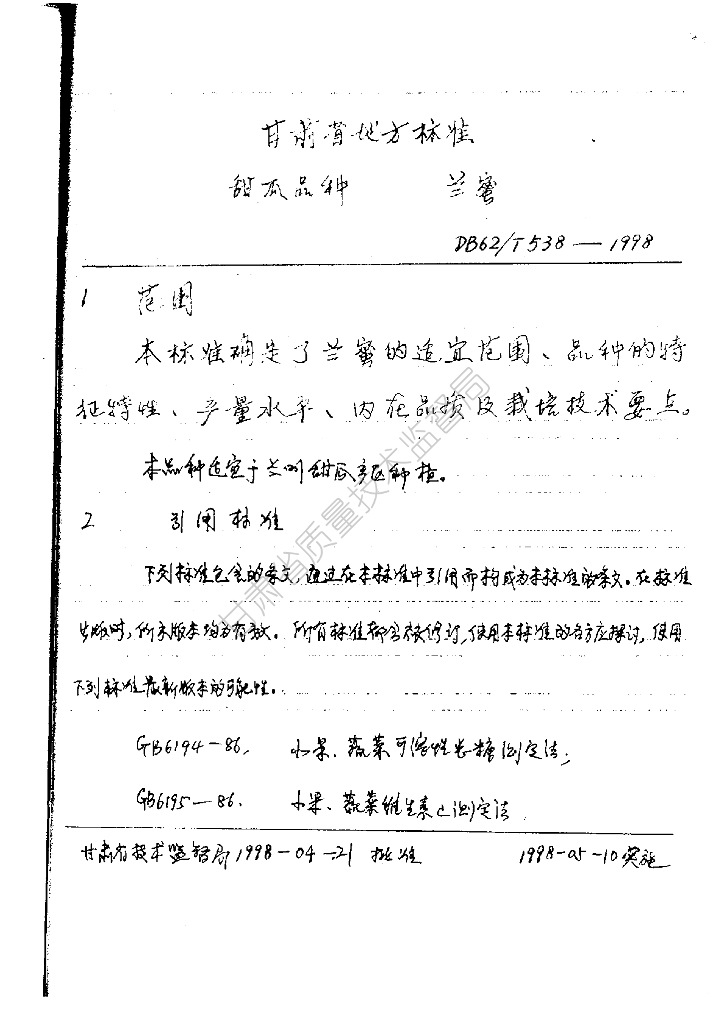 甘肃省地方标准
甜瓜品种 兰蜜
DB62/T538—1998
1 范围
本标准确定了兰蜜的适宜范围、品种的特
征特性、产量水平、内在品质及栽培技术要点。
本品种适宜于兰州甜瓜产区种植。
2 引用标准
下列标准包含的条文,通过在本标准中引用而构成为本标准的条文。在标准
出版时,所示版本均为有效。所有标准都会被修订,使用本标准的各方应探讨,使用
下列标准最新版本的可能性。
GB6194-86, 水果、蔬菜可溶性总糖测定法;
GB6195-86. 水果、蔬菜维生素C测定法
甘肃省技术监督局1998-04-21 批准 1998-05-10实施
甘肃省质量技术监督局